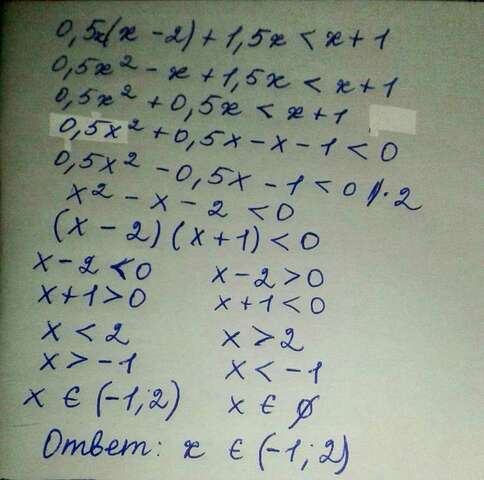 0,5x(x - 2) + 1,5x < x + 1
0,5x² - x + 1,5x < x + 1
0,5x² + 0,5x < x + 1
0,5x² + 0,5x - x - 1 < 0
0,5x² - 0,5x - 1 < 0 |· 2
x² - x - 2 < 0
(x - 2)(x + 1) < 0
x - 2 < 0 x - 2 > 0
x + 1 > 0 x + 1 < 0
x < 2 x > 2
x > -1 x < -1
x ∈ (-1; 2) x ∈ ∅
Ответ: x ∈ (-1; 2)